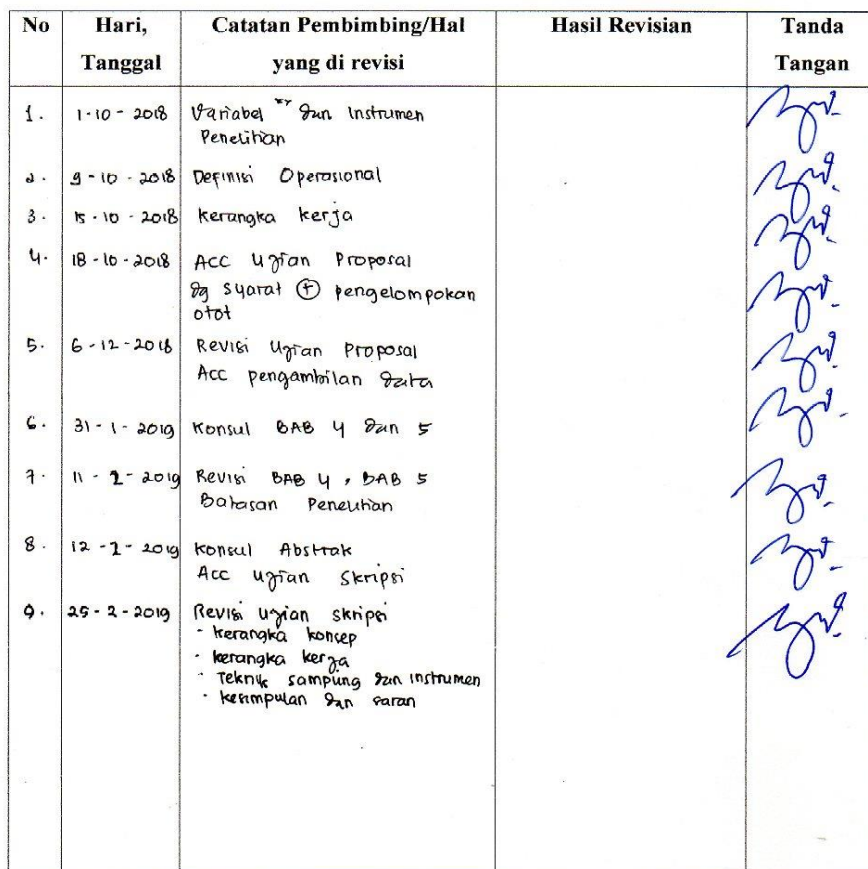 No Hari, Tanggal Catatan Pembimbing/Hal yang di revisi Hasil Revisian Tanda Tangan
1. 1-10-2018 Variabel dan Instrumen
Penelitian
2. 9-10-2018 Definisi Operasional
3. 15-10-2018 Kerangka kerja
4. 18-10-2018 ACC Ujian Proposal
dg syarat + pengelompokan
otot
5. 6-12-2018 Revisi Ujian Proposal
Acc pengambilan data
6. 31-1-2019 Konsul BAB 4 dan 5
7. 11-2-2019 Revisi BAB 4, BAB 5
Batasan Penelitian
8. 12-2-2019 Konsul Abstrak
Acc ujian skripsi
9. 25-2-2019 Revisi ujian skripsi
- kerangka konsep
- kerangka kerja
- Teknik sampling dan instrumen
- kesimpulan dan saran